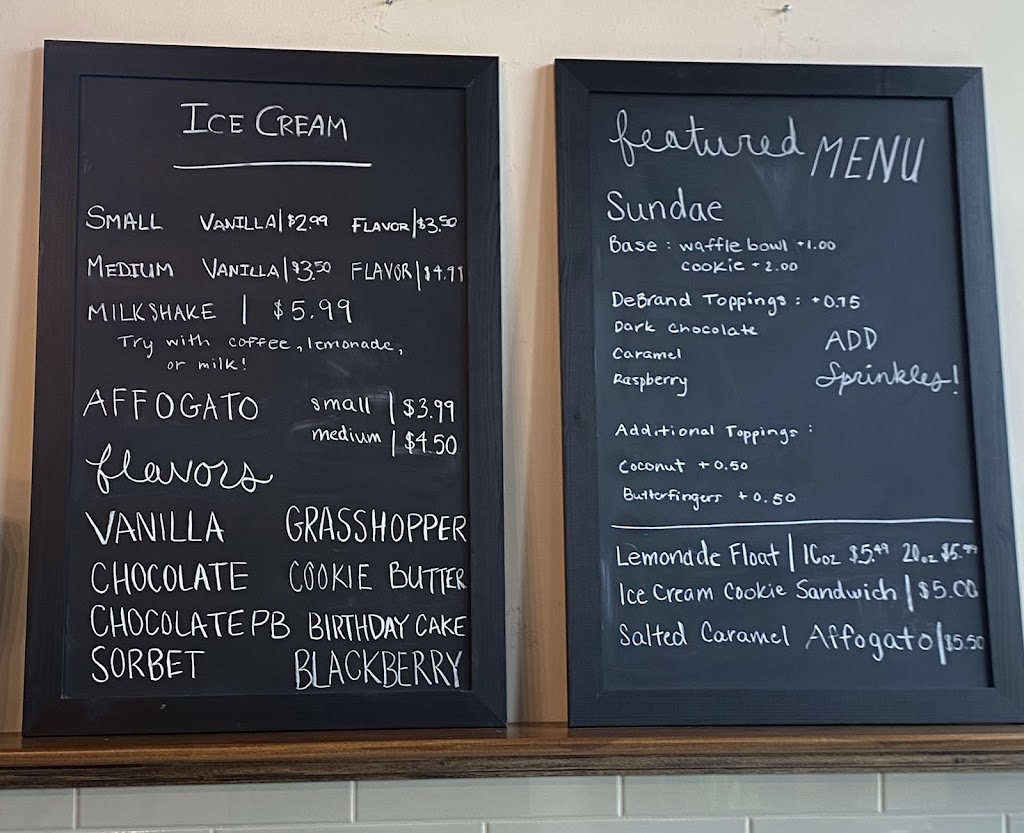 ICE CREAM
SMALL VANILLA | $2.99 FLAVOR | $3.50
MEDIUM VANILLA | $3.50 FLAVOR |
MILKSHAKE | $5.99
Try with coffee, lemonade,
or milk!
AFFOGATO small | $3.99
medium | $4.50
flavors
VANILLA GRASSHOPPER
CHOCOLATE COOKIE BUTTER
CHOCOLATE PB BIRTHDAY CAKE
SORBET BLACKBERRY
featured MENU
Sundae
Base : waffle bowl +1.00
cookie + 2.00
DeBrand Toppings : +0.75
Dark Chocolate
Caramel
Raspberry
ADD
Sprinkles!
Additional Toppings :
Coconut +0.50
Butterfingers +0.50
Lemonade Float | 16oz $5.49 20oz $5.99
Ice Cream Cookie Sandwich | $5.00
Salted Caramel Affogato | $5.50